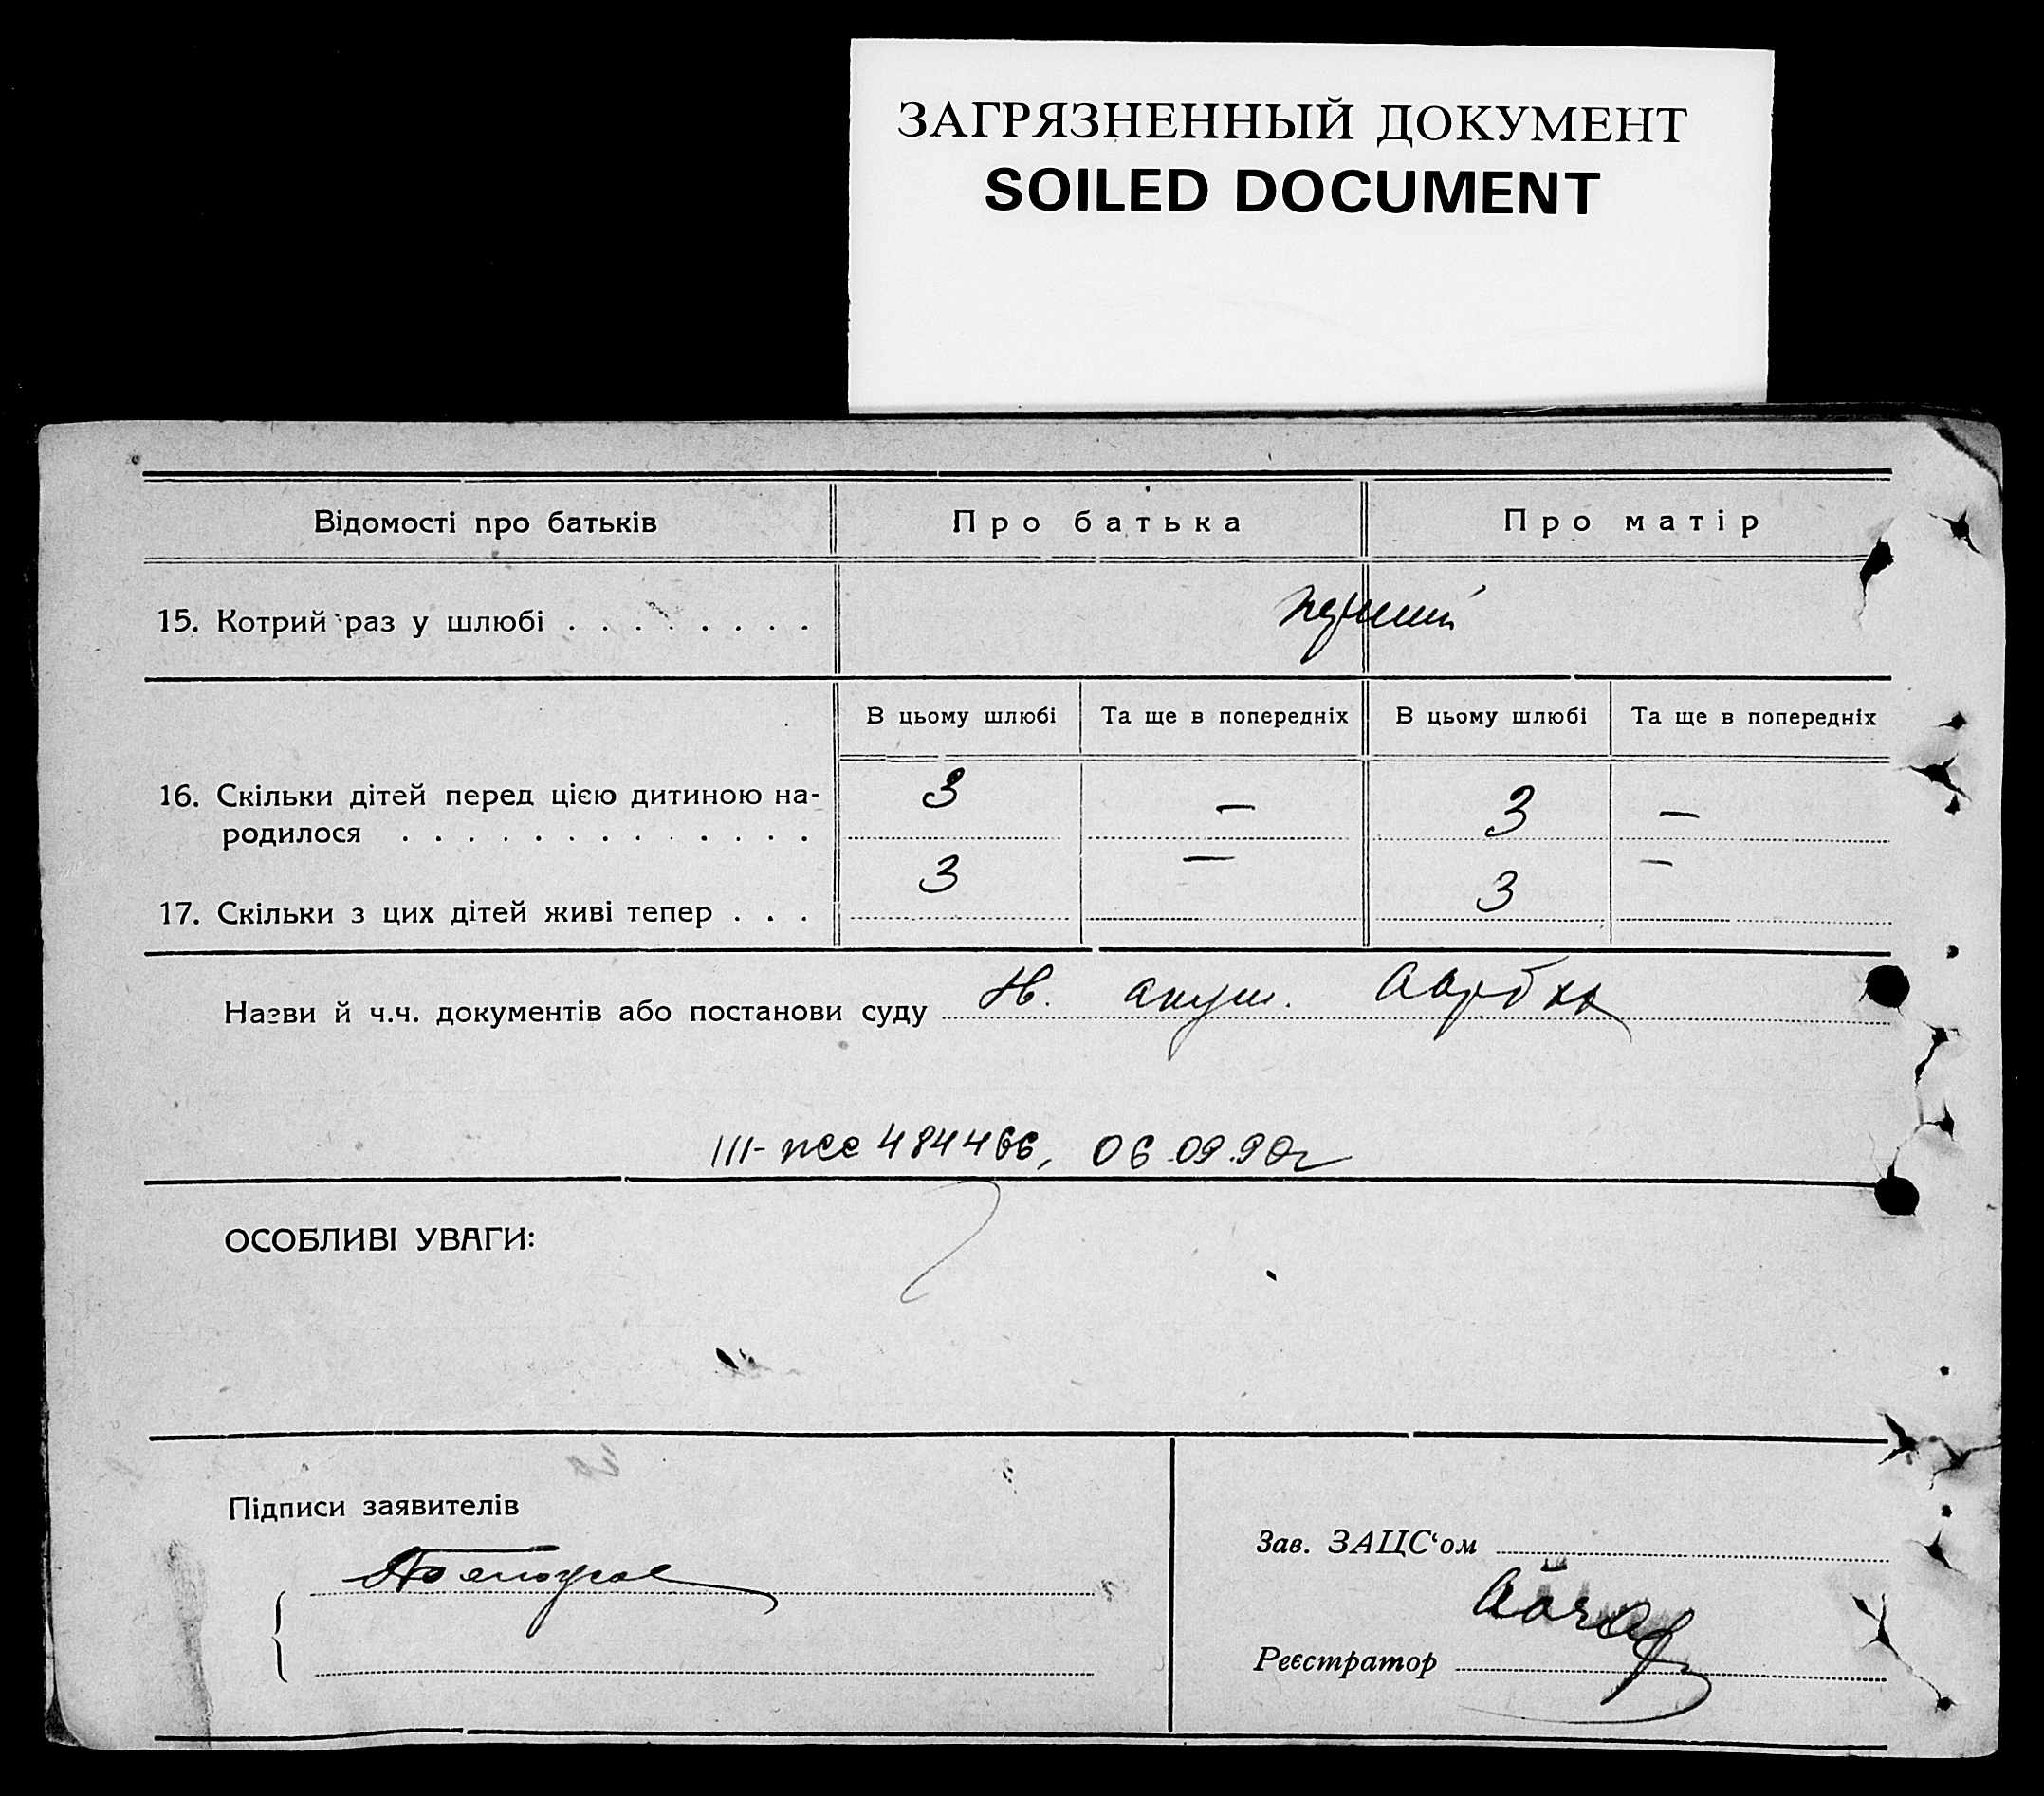 ЗАГРЯЗНЕННЫЙ ДОКУМЕНТ
SOILED DOCUMENT
Відомості про батьків Про батька Про матір
15. Котрий раз у шлюбі . . . . . . . . перший
В цьому шлюбі Та ще в попередніх В цьому шлюбі Та ще в попередніх
16. Скільки дітей перед цією дитиною на-
родилося . . . . . . . . . . . . . 3 — 3 —
17. Скільки з цих дітей живі тепер . . . 3 — 3 —
Назви й ч.ч. документів або постанови суду акуш.
06.09.90г
ОСОБЛИВІ УВАГИ:
Підписи заявителів
Зав. ЗАЦС‘ом
Реєстратор